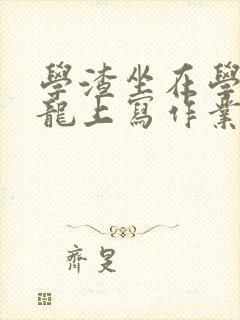 學渣坐在學
龍上寫作業
齊旻